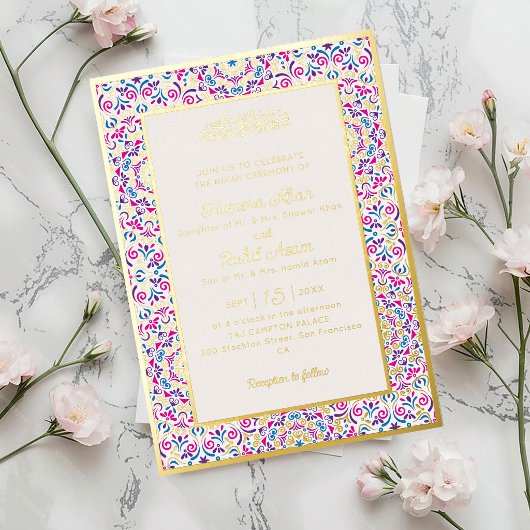 JOIN US TO CELEBRATE
THE NIKAH CEREMONY OF
Allan
Daughter of Mr. & Mrs. Dhawar Khan
and
Rahil Azam
Son of Mr. & Mrs. Hamid Azam
SEPT | 15 | 20XX
at 4 o'clock in the afternoon
TAJ CAMPTON PALACE
300 Stockton Street, San Francisco
CA
Reception to follow